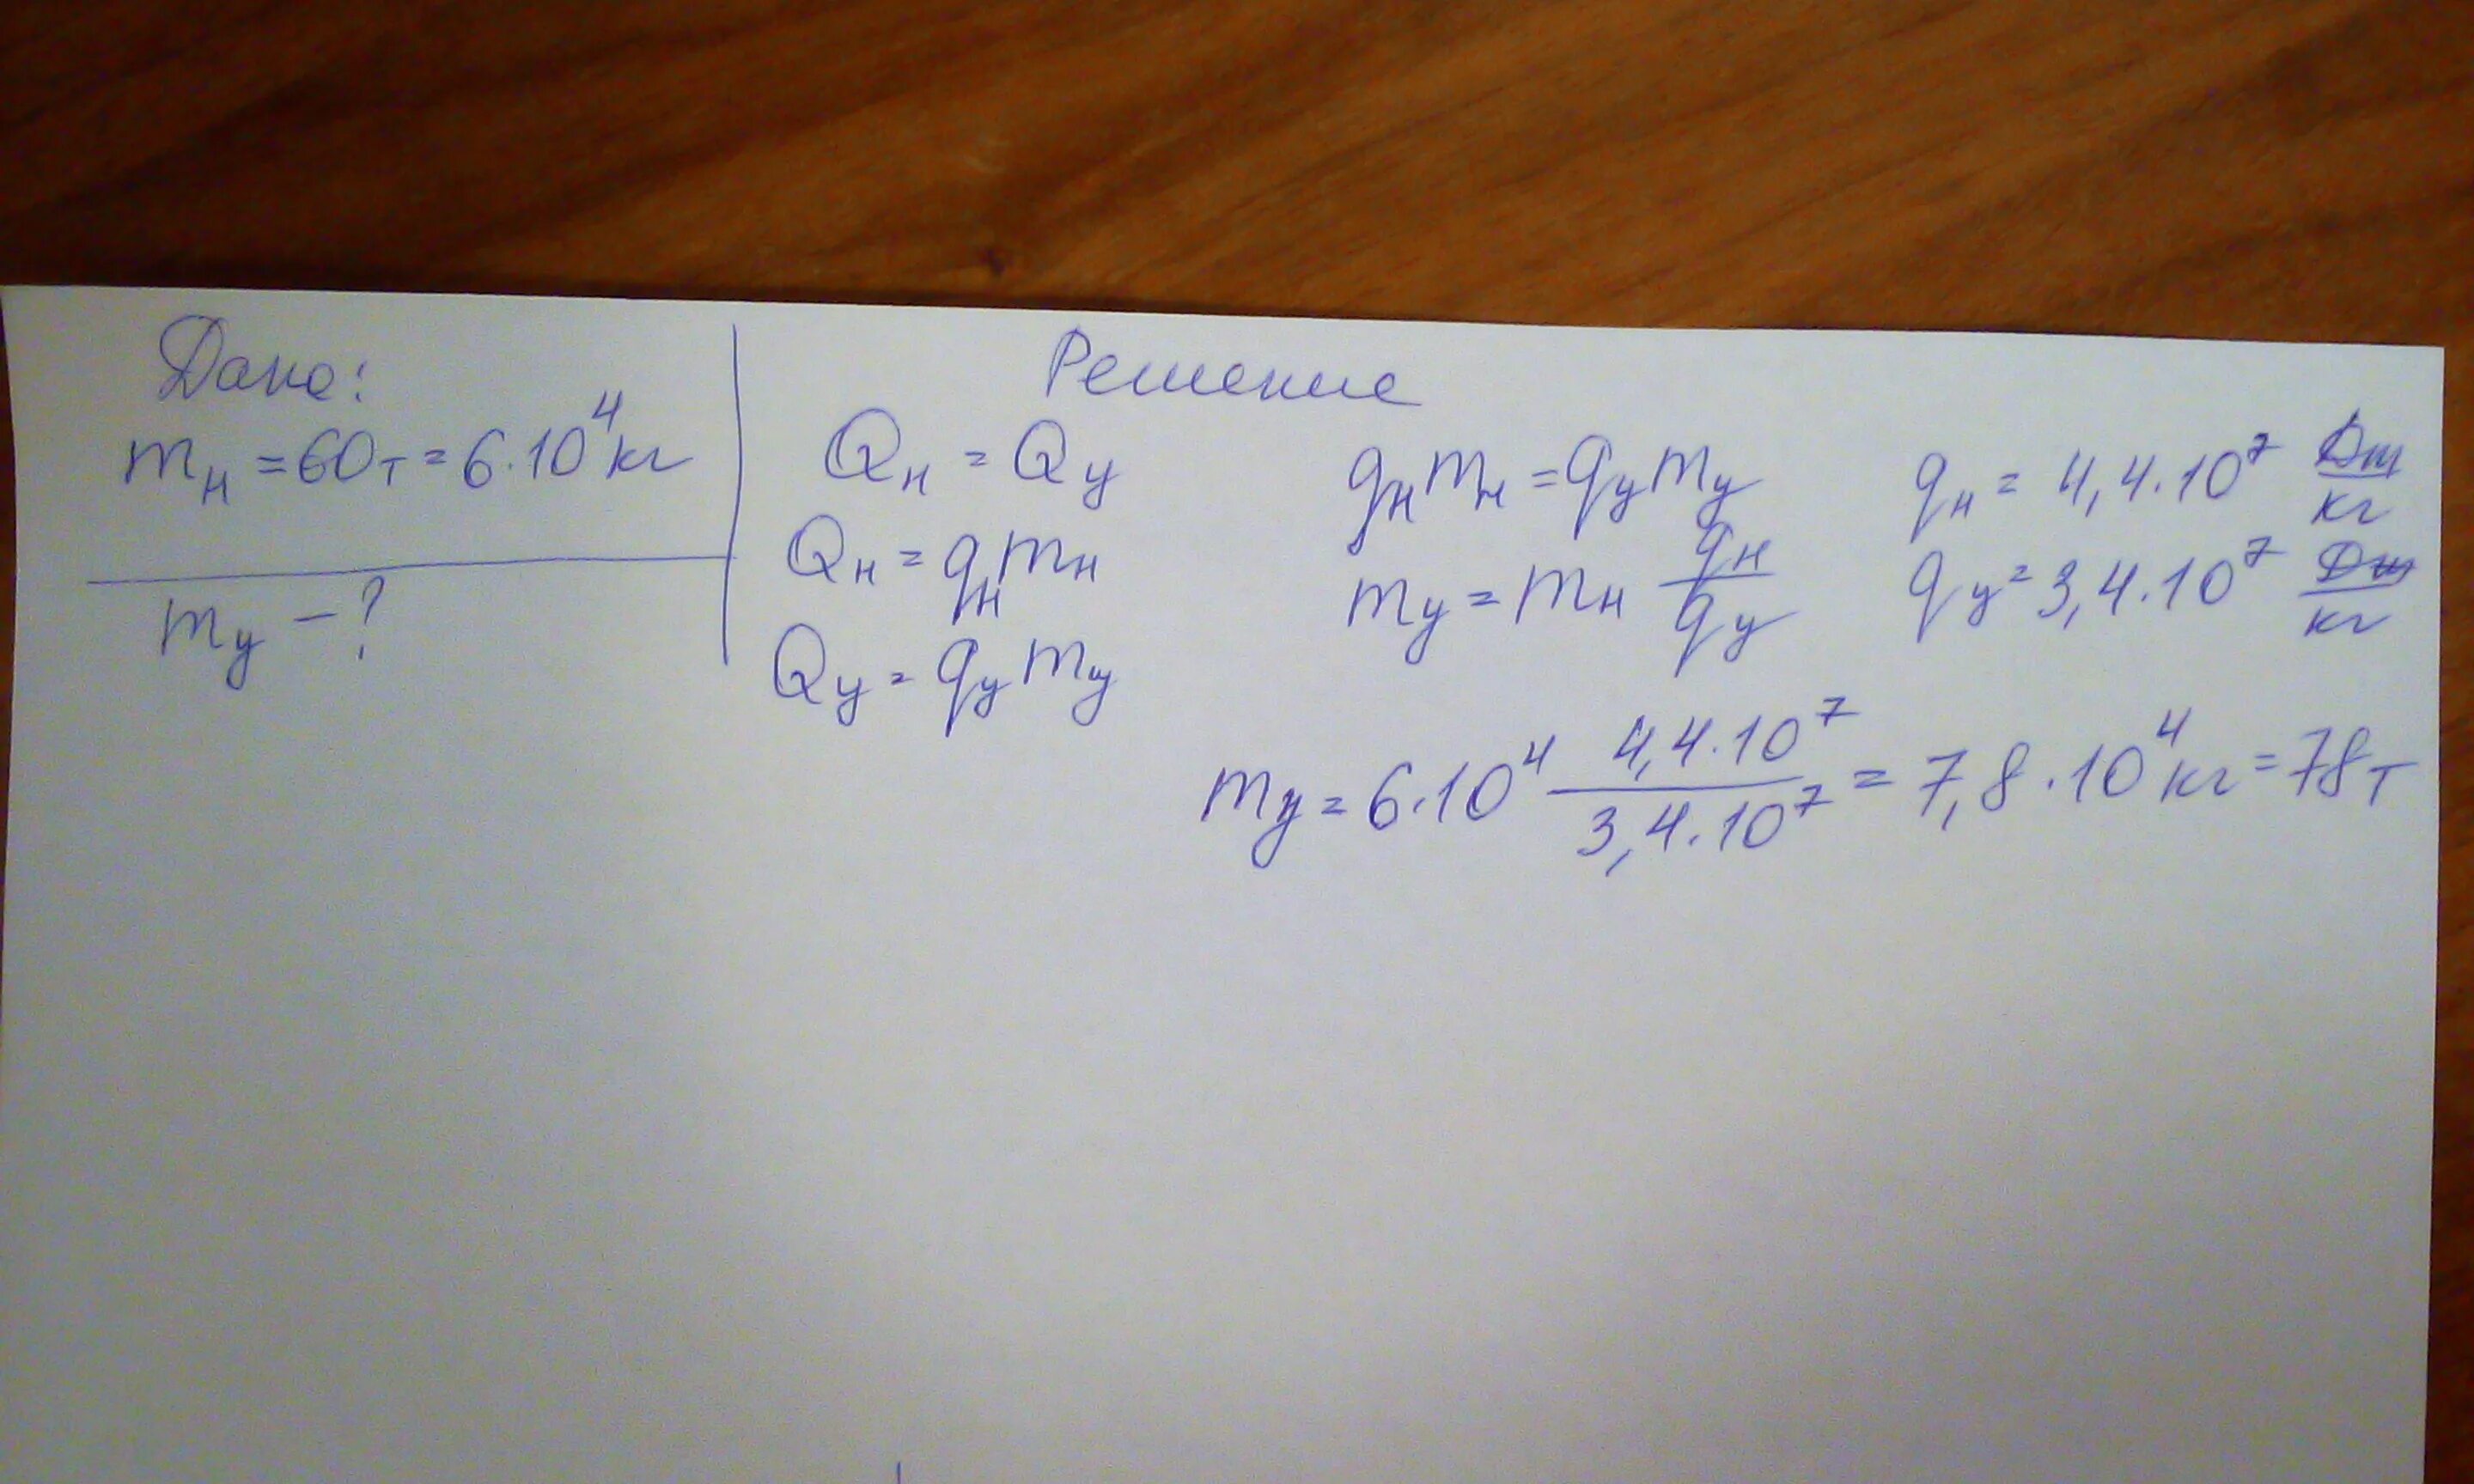 Дано:
mн = 60т = 6·10⁴кг
mу – ?
Решение
Qн = Qу
Qн = qнmн
Qу = qуmу
qнmн = qуmу
mу = mн qн/qу
qн = 4,4·10⁷ Дж/кг
qу = 3,4·10⁷ Дж/кг
mу = 6·10⁴ 4,4·10⁷/3,4·10⁷ = 7,8·10⁴кг = 78т